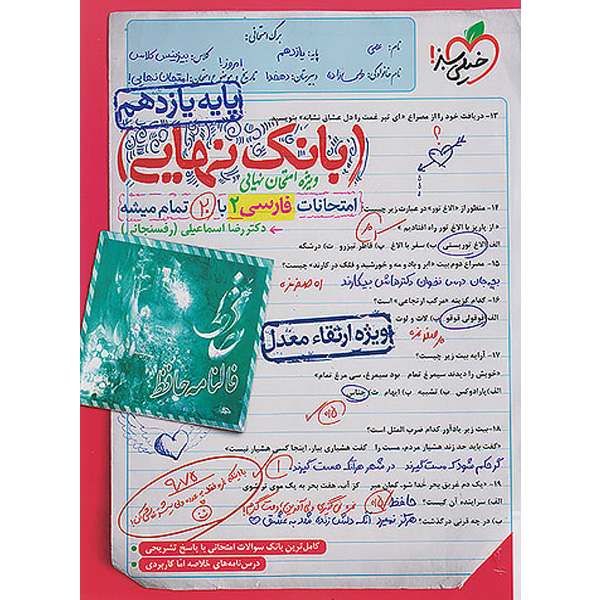 خیلی سبز!
برگ امتحانی:
نام: علی
پایه: یازدهم
کلاس: بیزینس کلاس
نام خانوادگی:
دبیرستان: دهخدا
امروز!
امتحان نهایی!
پایه یازدهم
۱۳- دریافت خود را از مصراع «ای تیر غمت را دل عشاق نشانه» بنویسید.
(بانک نهایی)
ویژه امتحان نهایی
امتحانات فارسی ۲ با ۲۰ تمام میشه
دکتر رضا اسماعیلی (رفسنجانی)
۱۴- منظور از «الاغ تور» در عبارت زیر چیست؟
«از پاریز با الاغ تور راه افتادیم.»
الف) الاغ توریستی ب) سفر با الاغ پ) قاطر تیزرو ت) درشگه
۱۵- مصراع دوم بیت «ابر و باد و مه و خورشید و فلک در کارند» چیست؟
بچه‌جان درس نخوان دکترهاش بیکارند
۱۶- کدام گزینه «مرکب ارتجاعی» است؟
الف) قوقولی قوقو ب) لات و لوت
ویژه ارتقاء معدل
۱۷- آرایه بیت زیر چیست؟
«خویش را دیدند سیمرغ تمام بود سیمرغ، سی مرغ تمام»
الف) پارادوکس ب) تشبیه پ) ایهام ت) جناس
فالنامه حافظ
۱۸- بیت زیر یادآور کدام ضرب المثل است؟
«گفت باید حد زند هشیار مردم، مست را گفت هشیاری بیار، اینجا کسی هشیار نیست»
گر حکم شود که مست گیرند در شهر هر آنکه هست گیرند
۱۹- «یک دم غریق بحر خدا شو، گمان مبر کز آب، هفت بحر به یک موی تر شوی»
الف) سراینده آن کیست؟ حافظ
ب) در چه قرنی درگذشت؟ هرگز نمیرد آنکه دلش زنده شد به عشق
۹/۷۵
کامل‌ترین بانک سوالات امتحانی با پاسخ تشریحی
درس‌نامه‌های خلاصه اما کاربردی